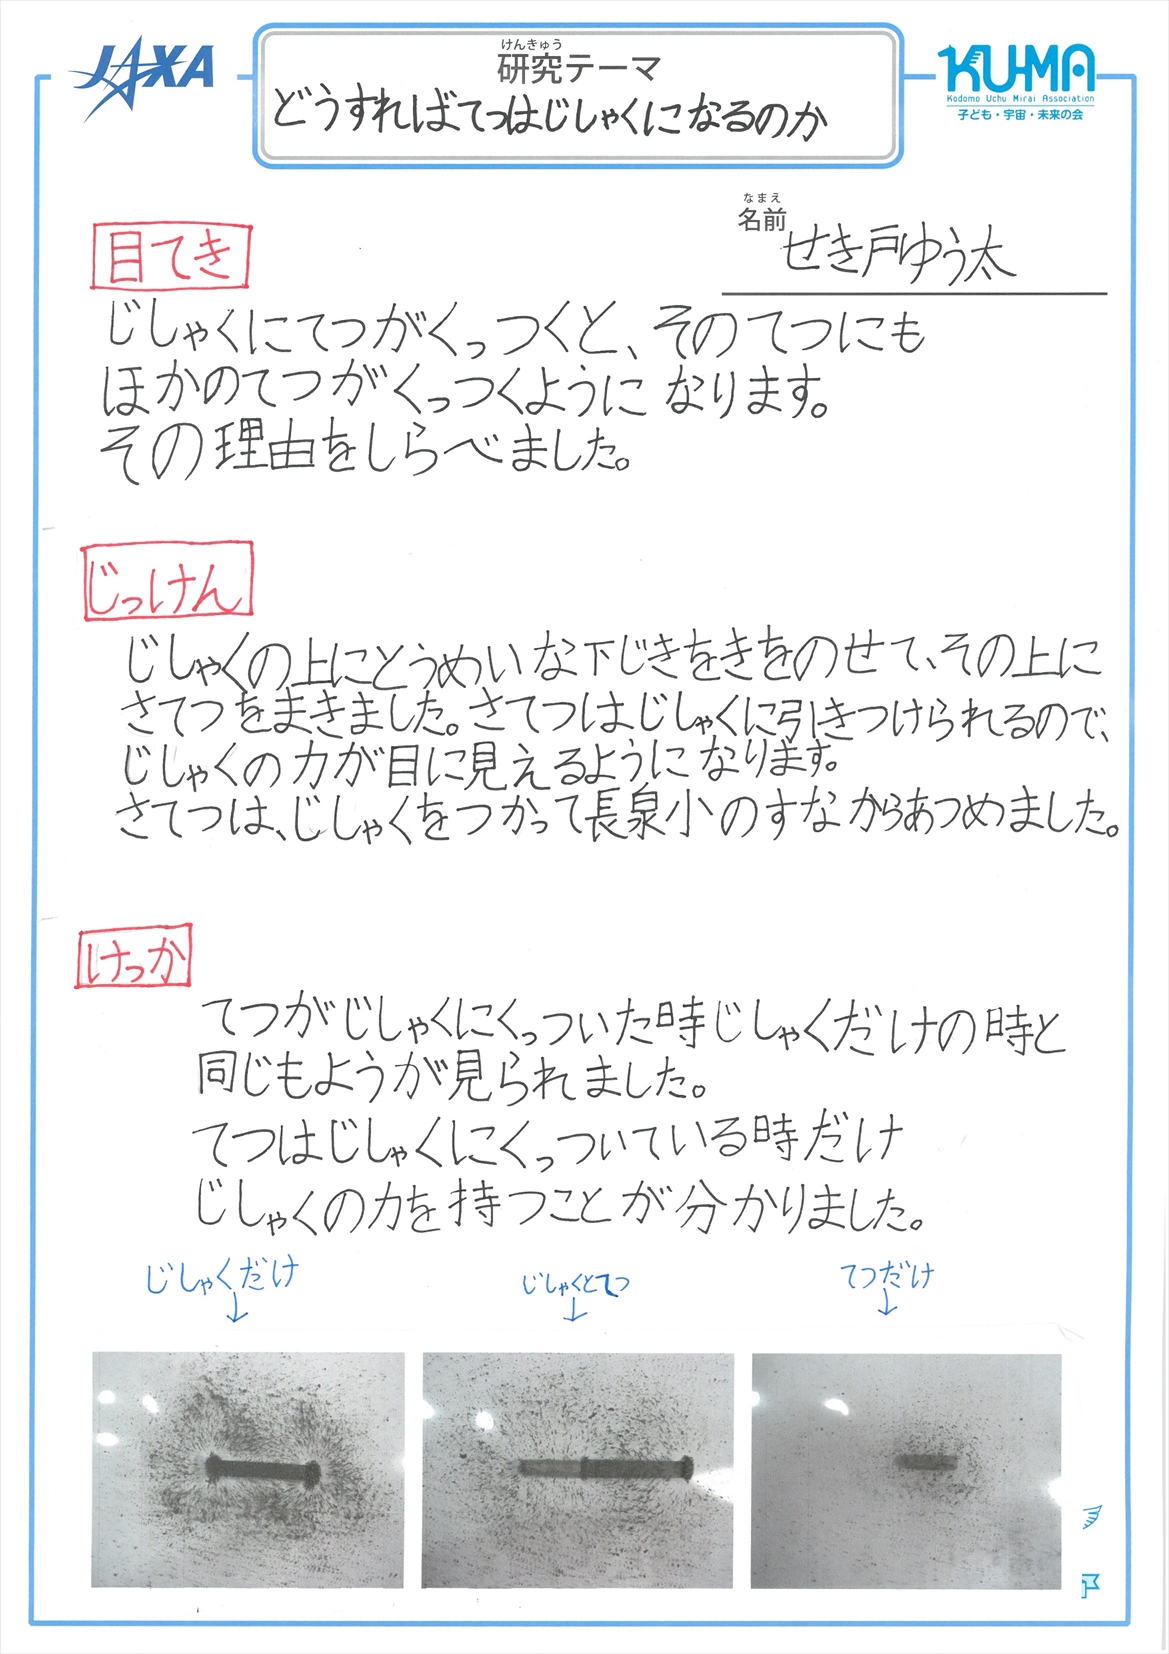 JAXA
けんきゅう
研究テーマ
どうすればてつはじしゃくになるのか
KU-MA
Kodomo Uchu Mirai Association
子ども・宇宙・未来の会
なまえ
名前
せき戸ゆう太
目てき
じしゃくにてつがくっつくと、そのてつにも
ほかのてつがくっつくようになります。
その理由をしらべました。
じっけん
じしゃくの上にとうめいな下じきをきをのせて、その上に
さてつをまきました。さてつはじしゃくに引きつけられるので、
じしゃくの力が目に見えるようになります。
さてつは、じしゃくをつかって長泉小のすなからあつめました。
けっか
てつがじしゃくにくっついた時じしゃくだけの時と
同じもようが見られました。
てつはじしゃくにくっついている時だけ
じしゃくの力を持つことが分かりました。
じしゃくだけ
じしゃくとてつ
てつだけ